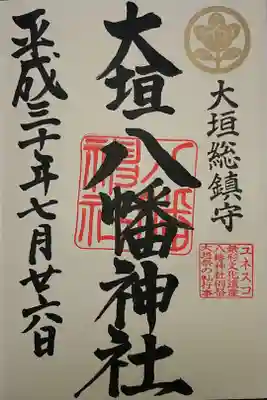 大垣総鎮守
大垣八幡神社
平成三十年七月廿六日
八幡神社
ユネスコ
無形文化遺産
八幡神社例祭
大垣祭の軕行事